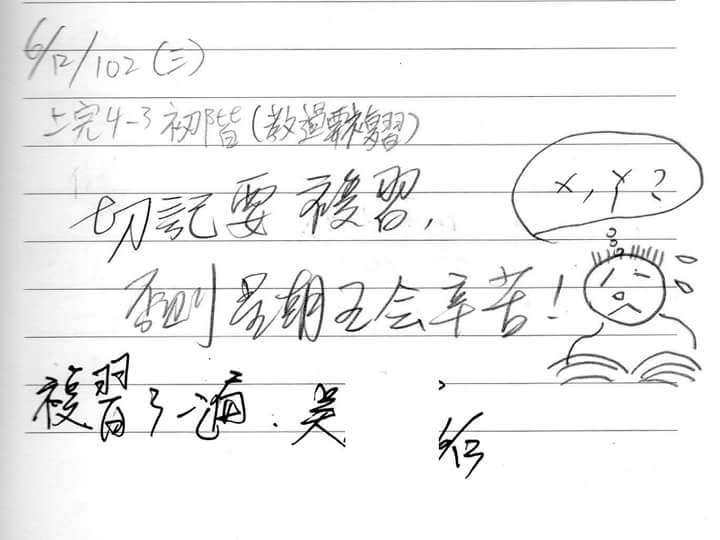 6/12/102 (三)
上完4-3初階(教過要複習)
x, y?
切記要複習,
否則星期五会辛苦!
複習了一遍. 吳
6/13